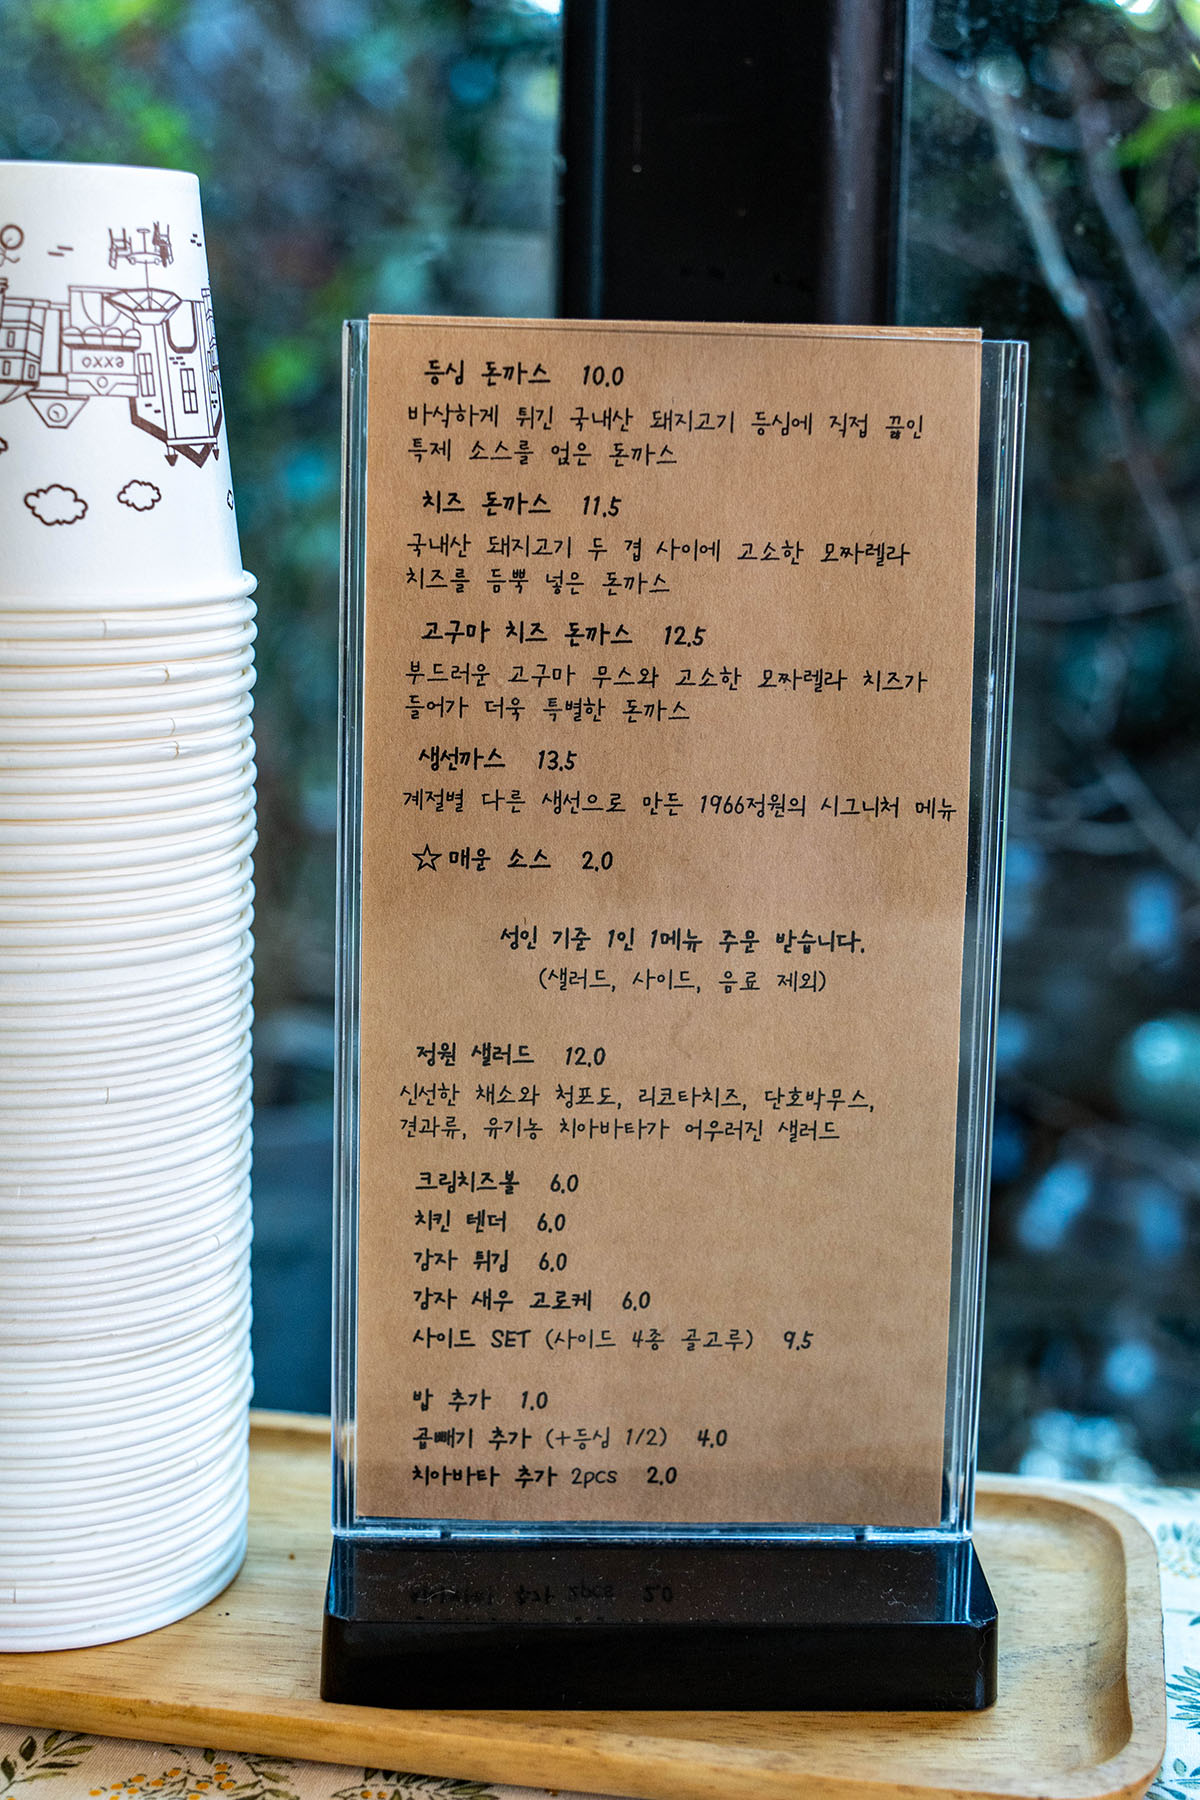 exxo
등심 돈까스 10.0
바삭하게 튀긴 국내산 돼지고기 등심에 직접 끓인
특제 소스를 얹은 돈까스
치즈 돈까스 11.5
국내산 돼지고기 두 겹 사이에 고소한 모짜렐라
치즈를 듬뿍 넣은 돈까스
고구마 치즈 돈까스 12.5
부드러운 고구마 무스와 고소한 모짜렐라 치즈가
들어가 더욱 특별한 돈까스
생선까스 13.5
계절별 다른 생선으로 만든 1966정원의 시그니처 메뉴
☆매운 소스 2.0
성인 기준 1인 1메뉴 주문 받습니다.
(샐러드, 사이드, 음료 제외)
정원 샐러드 12.0
신선한 채소와 청포도, 리코타치즈, 단호박무스,
견과류, 유기농 치아바타가 어우러진 샐러드
크림치즈볼 6.0
치킨 텐더 6.0
감자 튀김 6.0
감자 새우 고로케 6.0
사이드 SET (사이드 4종 골고루) 9.5
밥 추가 1.0
곱빼기 추가 (+등심 1/2) 4.0
치아바타 추가 2pcs 2.0